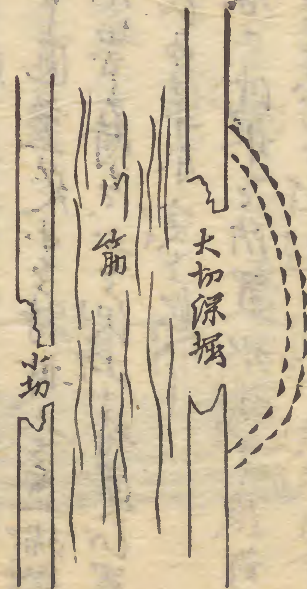 大切深堀
川筋
小切